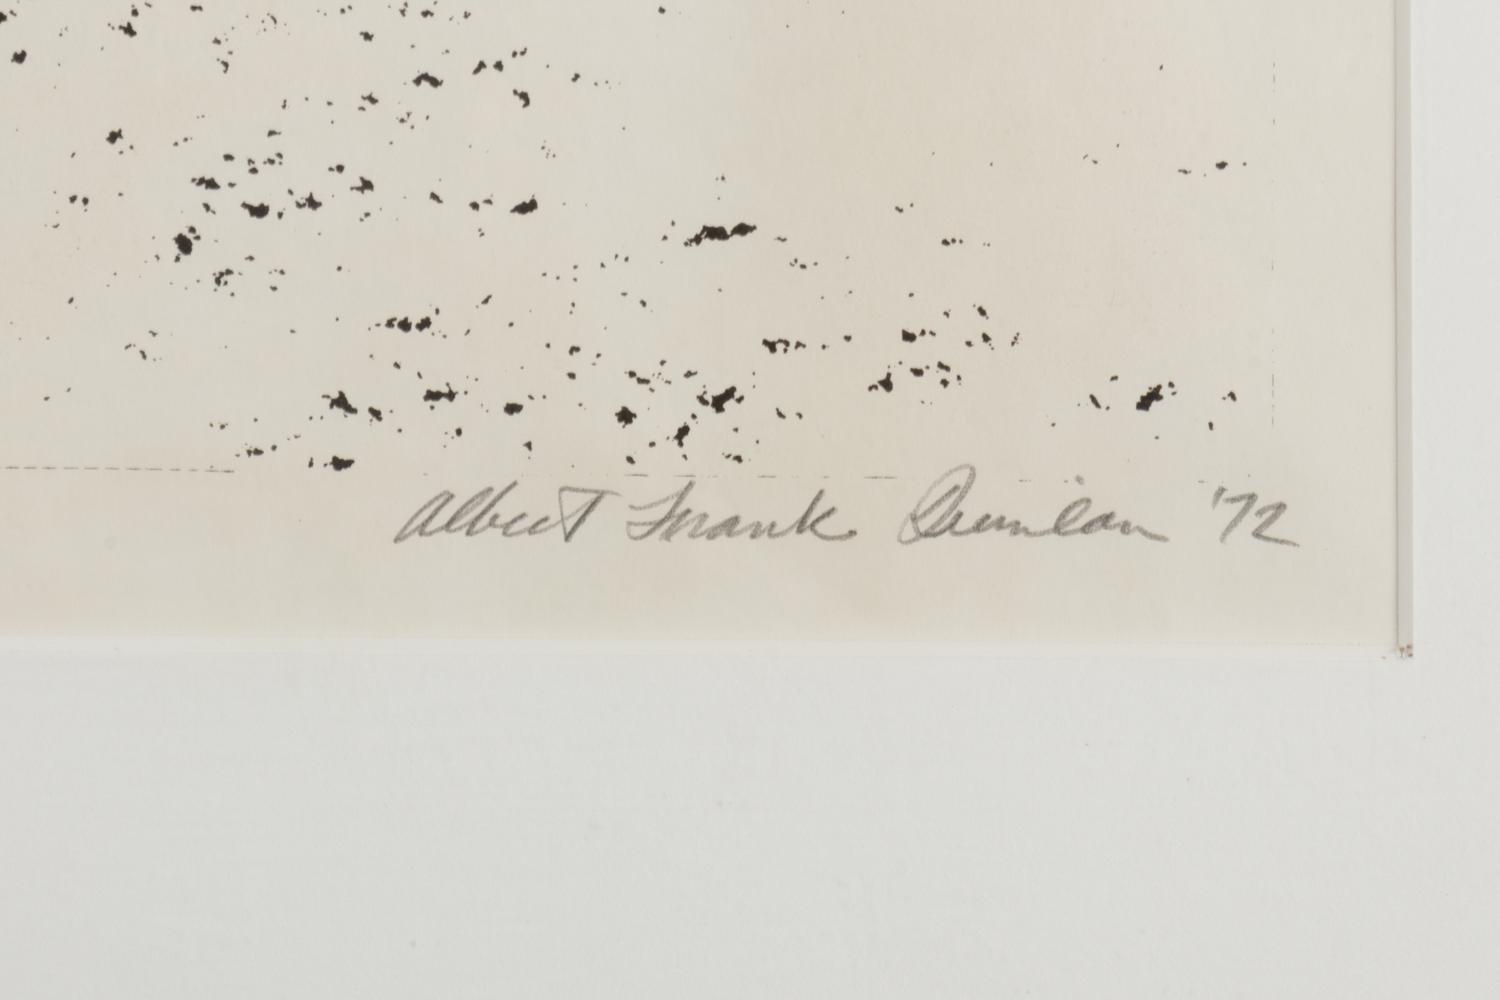 Albert Frank Quinlan '72